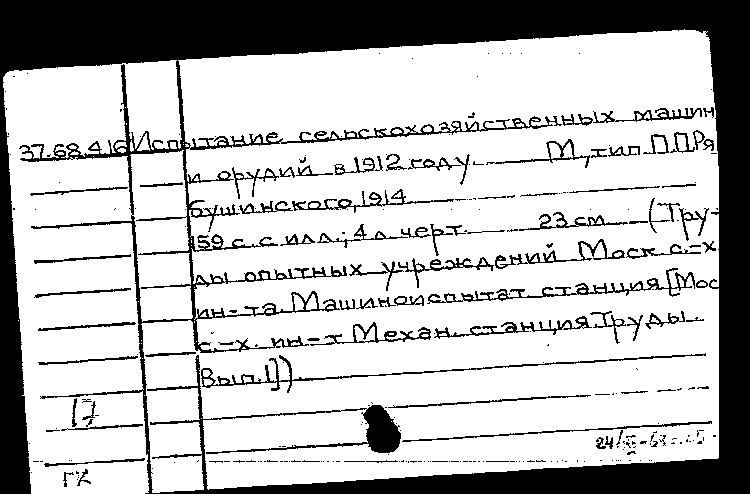 37.68.416 Испытание сельскохозяйственных машин
и орудий в 1912 году. М., тип. П.П.Ря
бушинского, 1914
159 с. с илл.; 4 л. черт. 23 см (Тру-
ды опытных учреждений Моск с.-х
ин-та. Машиноиспытат. станция [Мос
с.-х. ин-т Механ. станция. Труды.
Вып. 1])
17
гх